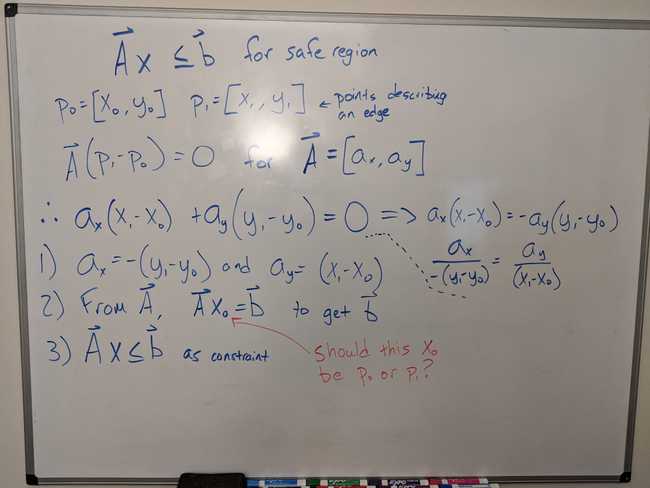 A⃗x ≤ b⃗ for safe region
p₀=[x₀, y₀] p₁=[x₁, y₁] ← points describing an edge
A⃗(p₁-p₀)=0 for A⃗=[aₓ, a_y]
∴ aₓ(x₁-x₀) +a_y(y₁-y₀)=0 => aₓ(x₁-x₀)=-a_y(y₁-y₀)
aₓ/-(y₁-y₀) = a_y/(x₁-x₀)
1) aₓ=-(y₁-y₀) and a_y= (x₁-x₀)
2) From A⃗, A⃗x₀=b⃗ to get b⃗
3) A⃗x≤b⃗ as constraint
should this x₀
be p₀ or p₁?